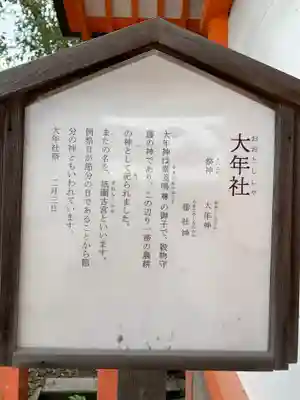 大年社
おおとししゃ
祭神
大年神
巷社神
大年神は素盞嗚尊の御子で、穀物守
護の神であり、この辺り一帯の農耕
の神として祀られました。
またの名を、祇園古宮といいます。
例祭日が節分の日であることから節
分の神ともいわれています。
大年社祭 二月三日